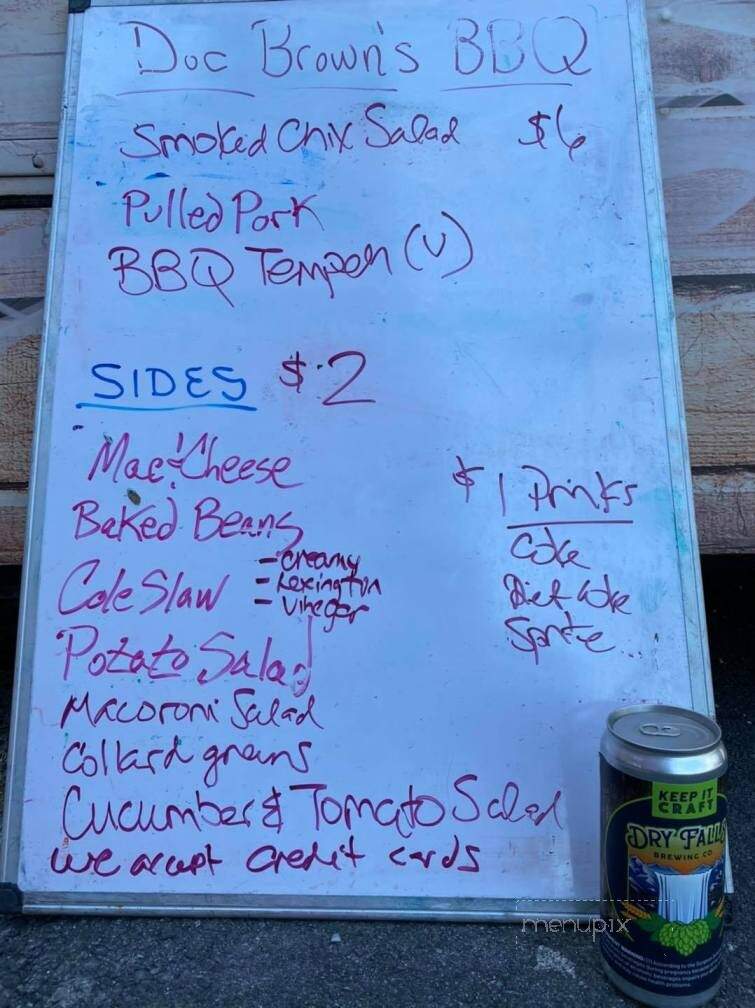 Doc Brown's BBQ
Smoked Chix Salad $6
Pulled Pork
BBQ Tempeh (V)
SIDES $2
Mac & Cheese
Baked Beans
Cole Slaw
- Creamy
- Lexington
- Vinegar
Potato Salad
Macoroni Salad
Collard greens
Cucumber & Tomato Salad
We accept credit cards
$1 Drinks
Coke
Diet Coke
Sprite
KEEP IT
CRAFT
DRY FALLS
BREWING CO
menupix